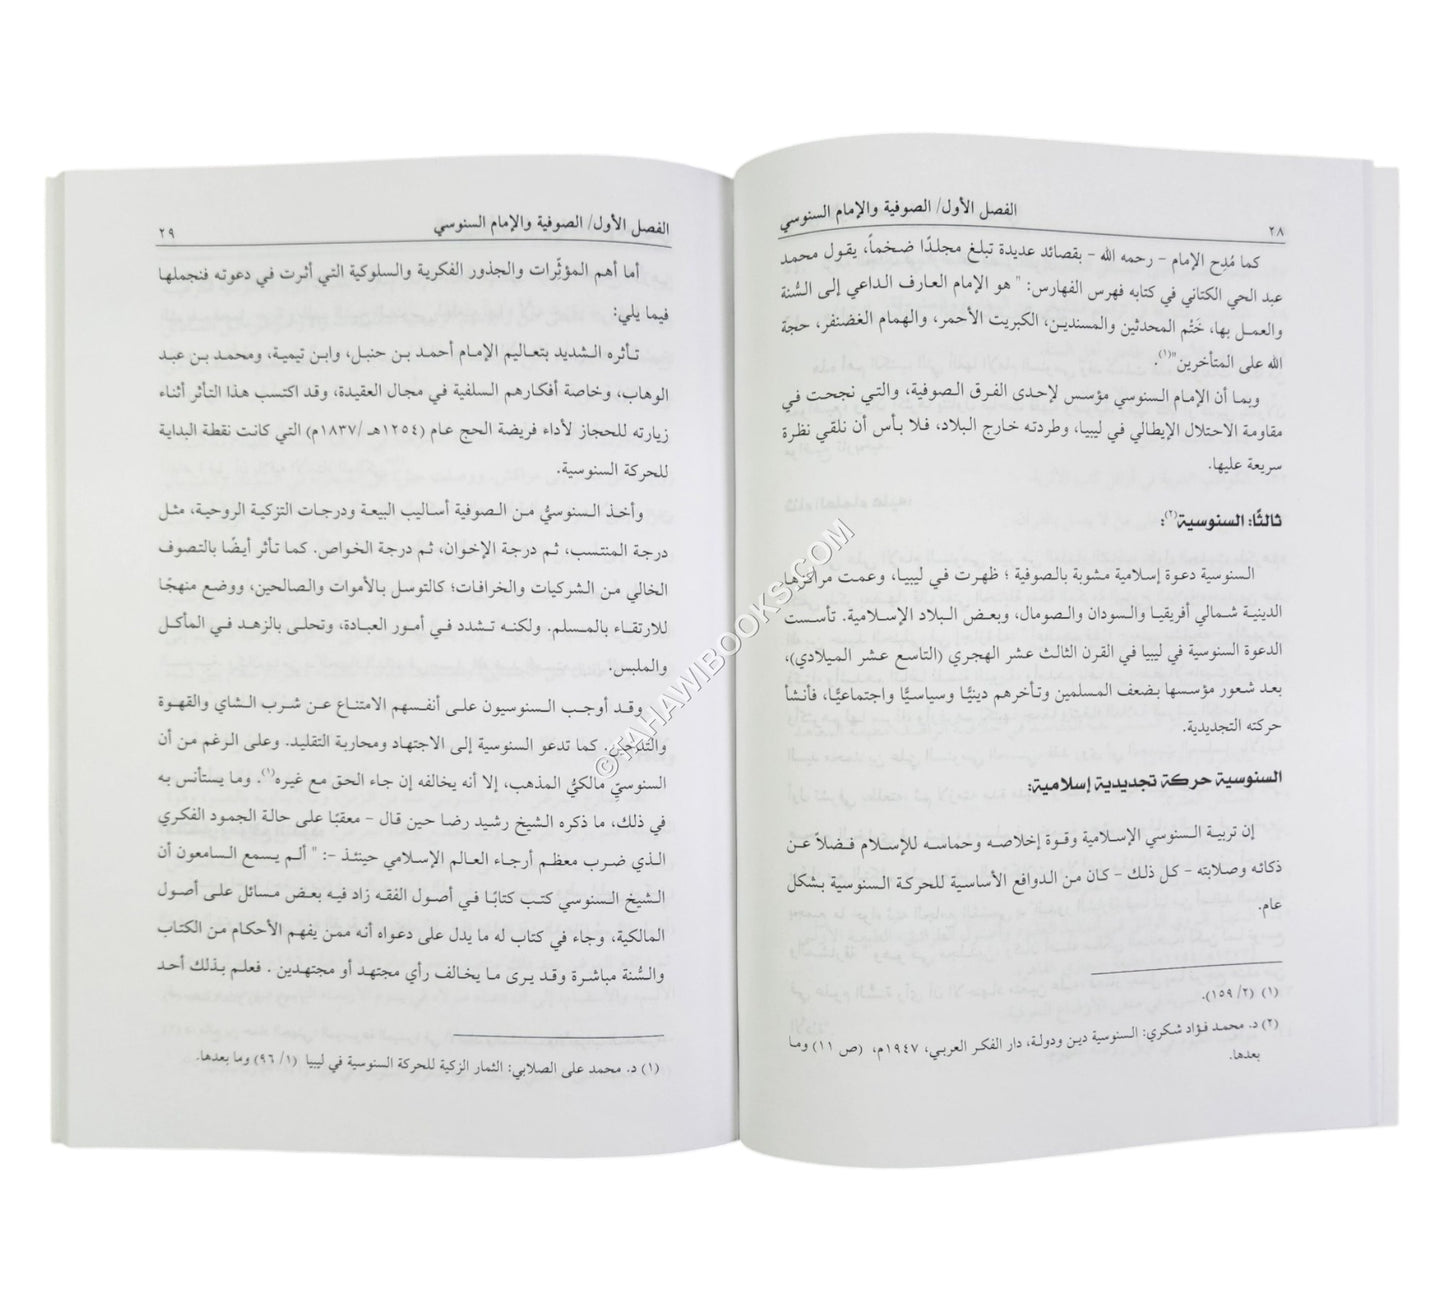 ٢٨
الفصل الأول/ الصوفية والإمام السنوسي
كما مُدِح الإمام – رحمه الله – بقصائد عديدة تبلغ مجلدًا ضخماً، يقول محمد
عبد الحي الكتاني في كتابه فهرس الفهارس: " هو الإمام العارف الداعي إلى السُّنة
والعمل بها، خَتْم المحدثين والمسندين، الكبريت الأحمر، والهمام الغضنفر، حجة
الله على المتأخرين"(١).
وبما أن الإمام السنوسي مؤسس لإحدى الفرق الصوفية، والتي نجحت في
مقاومة الاحتلال الإيطالي في ليبيا، وطردته خارج البلاد، فلا بأس أن نلقي نظرة
سريعة عليها.
ثالثًا: السنوسية(٢):
السنوسية دعوة إسلامية مشوبة بالصوفية ؛ ظهرت في ليبيا، وعمت مراكزها
الدينية شمالي أفريقيا والسودان والصومال، وبعض البلاد الإسلامية. تأسست
الدعوة السنوسية في ليبيا في القرن الثالث عشر الهجري (التاسع عشر الميلادي)،
بعد شعور مؤسسها بضعف المسلمين وتأخرهم دينيًّا وسياسيًّا واجتماعيًّا، فأنشأ
حركته التجديدية.
السنوسية حركة تجديدية إسلامية:
إن تربية السنوسي الإسلامية وقوة إخلاصه وحماسه للإسلام فضلاً عن
ذكائه وصلابته – كل ذلك – كان من الدوافع الأساسية للحركة السنوسية بشكل
عام.
(١) (٢/ ١٥٩).
(٢) د. محمد فؤاد شكري: السنوسية دين ودولة، دار الفكر العربي، ١٩٤٧م، (ص ١١) وما
بعدها.
الفصل الأول/ الصوفية والإمام السنوسي
٢٩
أما أهم المؤثِّرات والجذور الفكرية والسلوكية التي أثرت في دعوته فنجملها
فيما يلي:
تأثره الشديد بتعاليم الإمام أحمد بن حنبل، وابن تيمية، ومحمد بن عبد
الوهاب، وخاصة أفكارهم السلفية في مجال العقيدة، وقد اكتسب هذا التأثر أثناء
زيارته للحجاز لأداء فريضة الحج عام (١٢٥٤هـ /١٨٣٧م) التي كانت نقطة البداية
للحركة السنوسية.
وأخذ السنوسيُّ من الصوفية أساليب البيعة ودرجات التزكية الروحية، مثل
درجة المنتسب، ثم درجة الإخوان، ثم درجة الخواص. كما تأثر أيضًا بالتصوف
الخالي من الشركيات والخرافات؛ كالتوسل بالأموات والصالحين، ووضع منهجًا
للارتقاء بالمسلم. ولكنه تشدد في أمور العبادة، وتحلى بالزهد في المأكل
والملبس.
وقد أوجب السنوسيون على أنفسهم الامتناع عن شرب الشاي والقهوة
والتدخين. كما تدعو السنوسية إلى الاجتهاد ومحاربة التقليد. وعلى الرغم من أن
السنوسيِّ مالكيُّ المذهب، إلا أنه يخالفه إن جاء الحق مع غيره(١). وما يستأنس به
في ذلك، ما ذكره الشيخ رشيد رضا حين قال – معقبًا على حالة الجمود الفكري
الذي ضرب معظم أرجاء العالم الإسلامي حينئذ –: " ألم يسمع السامعون أن
الشيخ السنوسي كتب كتابًا في أصول الفقه زاد فيه بعض مسائل على أصول
المالكية، وجاء في كتاب له ما يدل على دعواه أنه ممن يفهم الأحكام من الكتاب
والسُّنة مباشرة وقد يرى ما يخالف رأي مجتهد أو مجتهدين . فعلم بذلك أحد
(١) د. محمد على الصلابي: الثمار الزكية للحركة السنوسية في ليبيا (١/ ٩٦) وما بعدها.
©TAHAWIBOOKS.COM